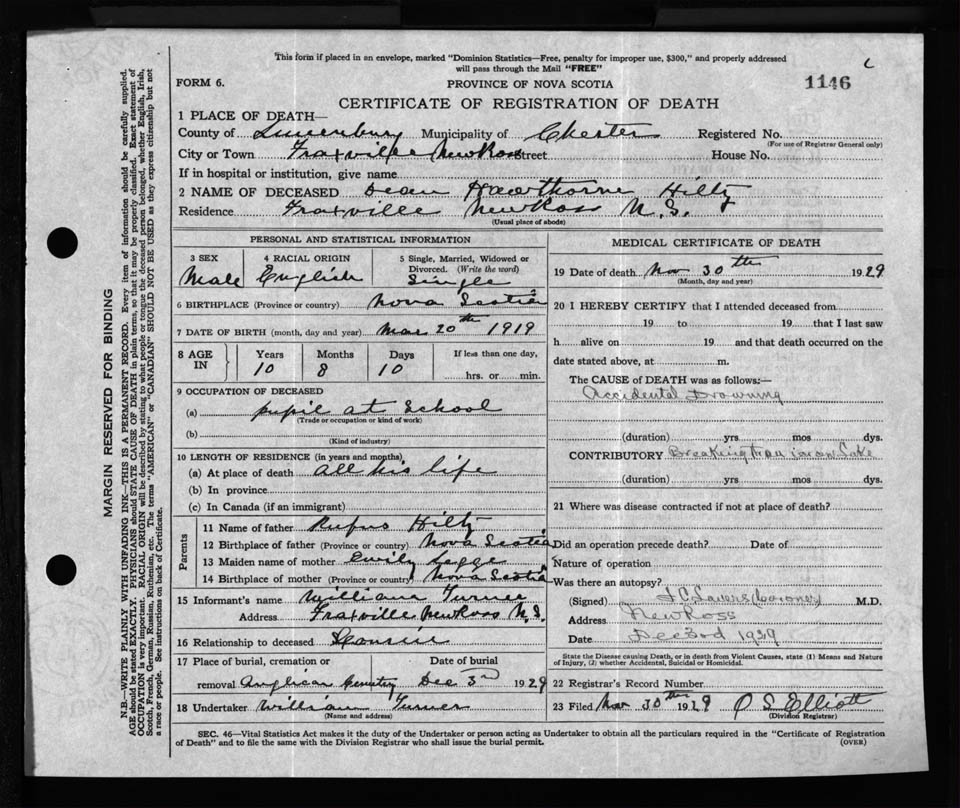 This form if placed in an envelope, marked "Dominion Statistics—Free, penalty for improper use, $300," and properly addressed
will pass through the Mail "FREE"
FORM 6.
PROVINCE OF NOVA SCOTIA
1146
CERTIFICATE OF REGISTRATION OF DEATH
1 PLACE OF DEATH—
County of Lunenburg Municipality of Chester Registered No.
(For use of Registrar General only)
City or Town Fraxville New Ross Street House No.
If in hospital or institution, give name
2 NAME OF DECEASED Dean Hawthorne Hiltz
Residence Fraxville New Ross N.S.
(Usual place of abode)
PERSONAL AND STATISTICAL INFORMATION
3 SEX 4 RACIAL ORIGIN 5 Single, Married, Widowed or Divorced. (Write the word)
Male English Single
6 BIRTHPLACE (Province or country) Nova Scotia
7 DATE OF BIRTH (month, day and year) Mar 20th 1919
8 AGE IN Years Months Days If less than one day,
10 8 10 hrs. or min.
9 OCCUPATION OF DECEASED
(a) pupil at School
(Trade or occupation or kind of work)
(b)
(Kind of industry)
10 LENGTH OF RESIDENCE (in years and months)
(a) At place of death all his life
(b) In province
(c) In Canada (if an immigrant)
Parents
11 Name of father Rufus Hiltz
12 Birthplace of father (Province or country) Nova Scotia
13 Maiden name of mother Emily
14 Birthplace of mother (Province or country) Nova Scotia
15 Informant's name William Turner
Address Fraxville New Ross N.S.
16 Relationship to deceased
17 Place of burial, cremation or Date of burial
removal Anglican Cemetry Dec 3rd 1929
18 Undertaker William Turner
(Name and address)
MEDICAL CERTIFICATE OF DEATH
19 Date of death Nov 30th 1929
(Month, day and year)
20 I HEREBY CERTIFY that I attended deceased from
19 to 19 that I last saw
h alive on 19 and that death occurred on the
date stated above, at m.
The CAUSE OF DEATH was as follows:—
Accidental Drowning
(duration) yrs mos dys.
CONTRIBUTORY Breaking thru ice on Lake
(duration) yrs mos dys.
21 Where was disease contracted if not at place of death?
Did an operation precede death? Date of
Nature of operation
Was there an autopsy?
(Signed) (Coroner) M.D.
Address New Ross
Date Dec 3rd 1929
State the Disease causing Death, or in death from Violent Causes, state (1) Means and Nature
of Injury, (2) whether Accidental, Suicidal or Homicidal.
22 Registrar's Record Number
23 Filed Nov 30th 1929 O S Elliott
(Division Registrar)
SEC. 46—Vital Statistics Act makes it the duty of the Undertaker or person acting as Undertaker to obtain all the particulars required in the "Certificate of Registration
of Death" and to file the same with the Division Registrar who shall issue the burial permit.
(OVER)
MARGIN RESERVED FOR BINDING
N.B.—WRITE PLAINLY WITH UNFADING INK—THIS IS A PERMANENT RECORD. Every item of information should be carefully supplied.
AGE should be stated EXACTLY. PHYSICIANS should STATE CAUSE OF DEATH in plain terms, so that it may be properly classified. Exact statement of
OCCUPATION is very important. RACIAL ORIGIN will be described by stating to what people or tongue the deceased person belonged, whether English, Irish,
Scotch, French, German, Russian, Ruthenian, etc. The terms "AMERICAN" or "CANADIAN" SHOULD NOT BE USED as they express citizenship but not
a race or people. See instructions on back of Certificate.